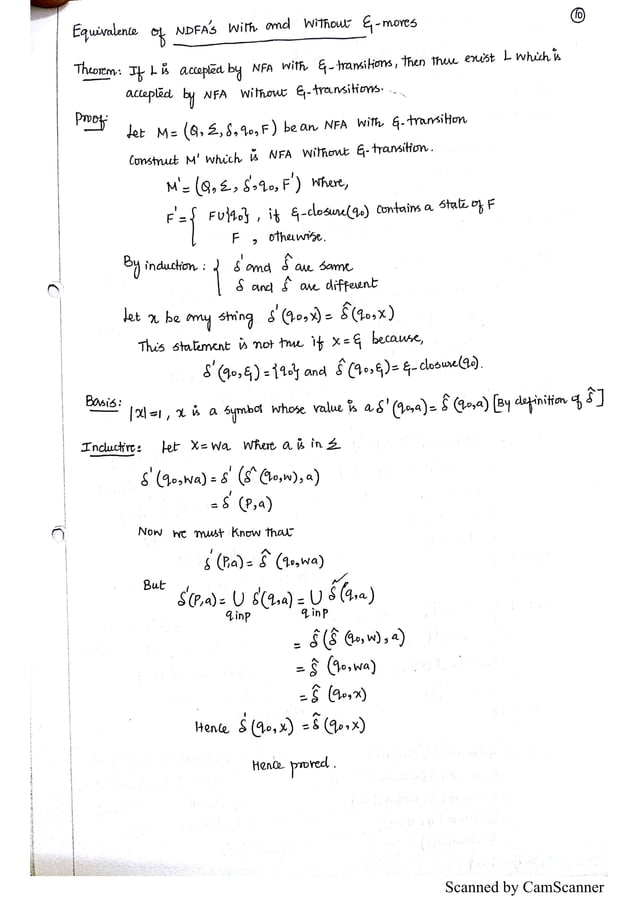 10
Equivalence of NDFA's with and without Ɛ-moves
Theorem: If L is accepted by NFA with Ɛ-transitions, then thee exist L which is
accepted by NFA without Ɛ-transitions.
Proof:
Let M = (Q, Σ, δ, q₀, F) be an NFA with Ɛ-transition
Construct M' which is NFA without Ɛ-transition.
M' = (Q, Σ, δ', q₀, F') where,
F' = { F∪{q₀}, if Ɛ-closure(q₀) contains a state of F
F, otherwise.
By induction : { δ' and δ̂ are same
δ and δ̂ are different
Let x be any string δ'(q₀,x) = δ̂(q₀,x)
This statement is not true if x = Ɛ because,
δ'(q₀,Ɛ) = {q₀} and δ̂(q₀,Ɛ) = Ɛ-closure(q₀).
Basis: |x|=1, x is a symbol whose value is a δ'(q₀,a) = δ̂(q₀,a) [By definition of δ̂]
Inductive: Let X = wa where a is in Σ
δ'(q₀,wa) = δ'(δ^(q₀,w),a)
= δ'(P,a)
Now we must know that
δ'(P,a) = δ̂(q₀,wa)
But δ'(P,a) = ∪ δ'(q,a) = ∪ δ̂(q,a)
q in P q in P
= δ̂(δ̂(q₀,w),a)
= δ̂(q₀,wa)
= δ̂(q₀,x)
Hence δ'(q₀,x) = δ̂(q₀,x)
Hence proved.
Scanned by CamScanner